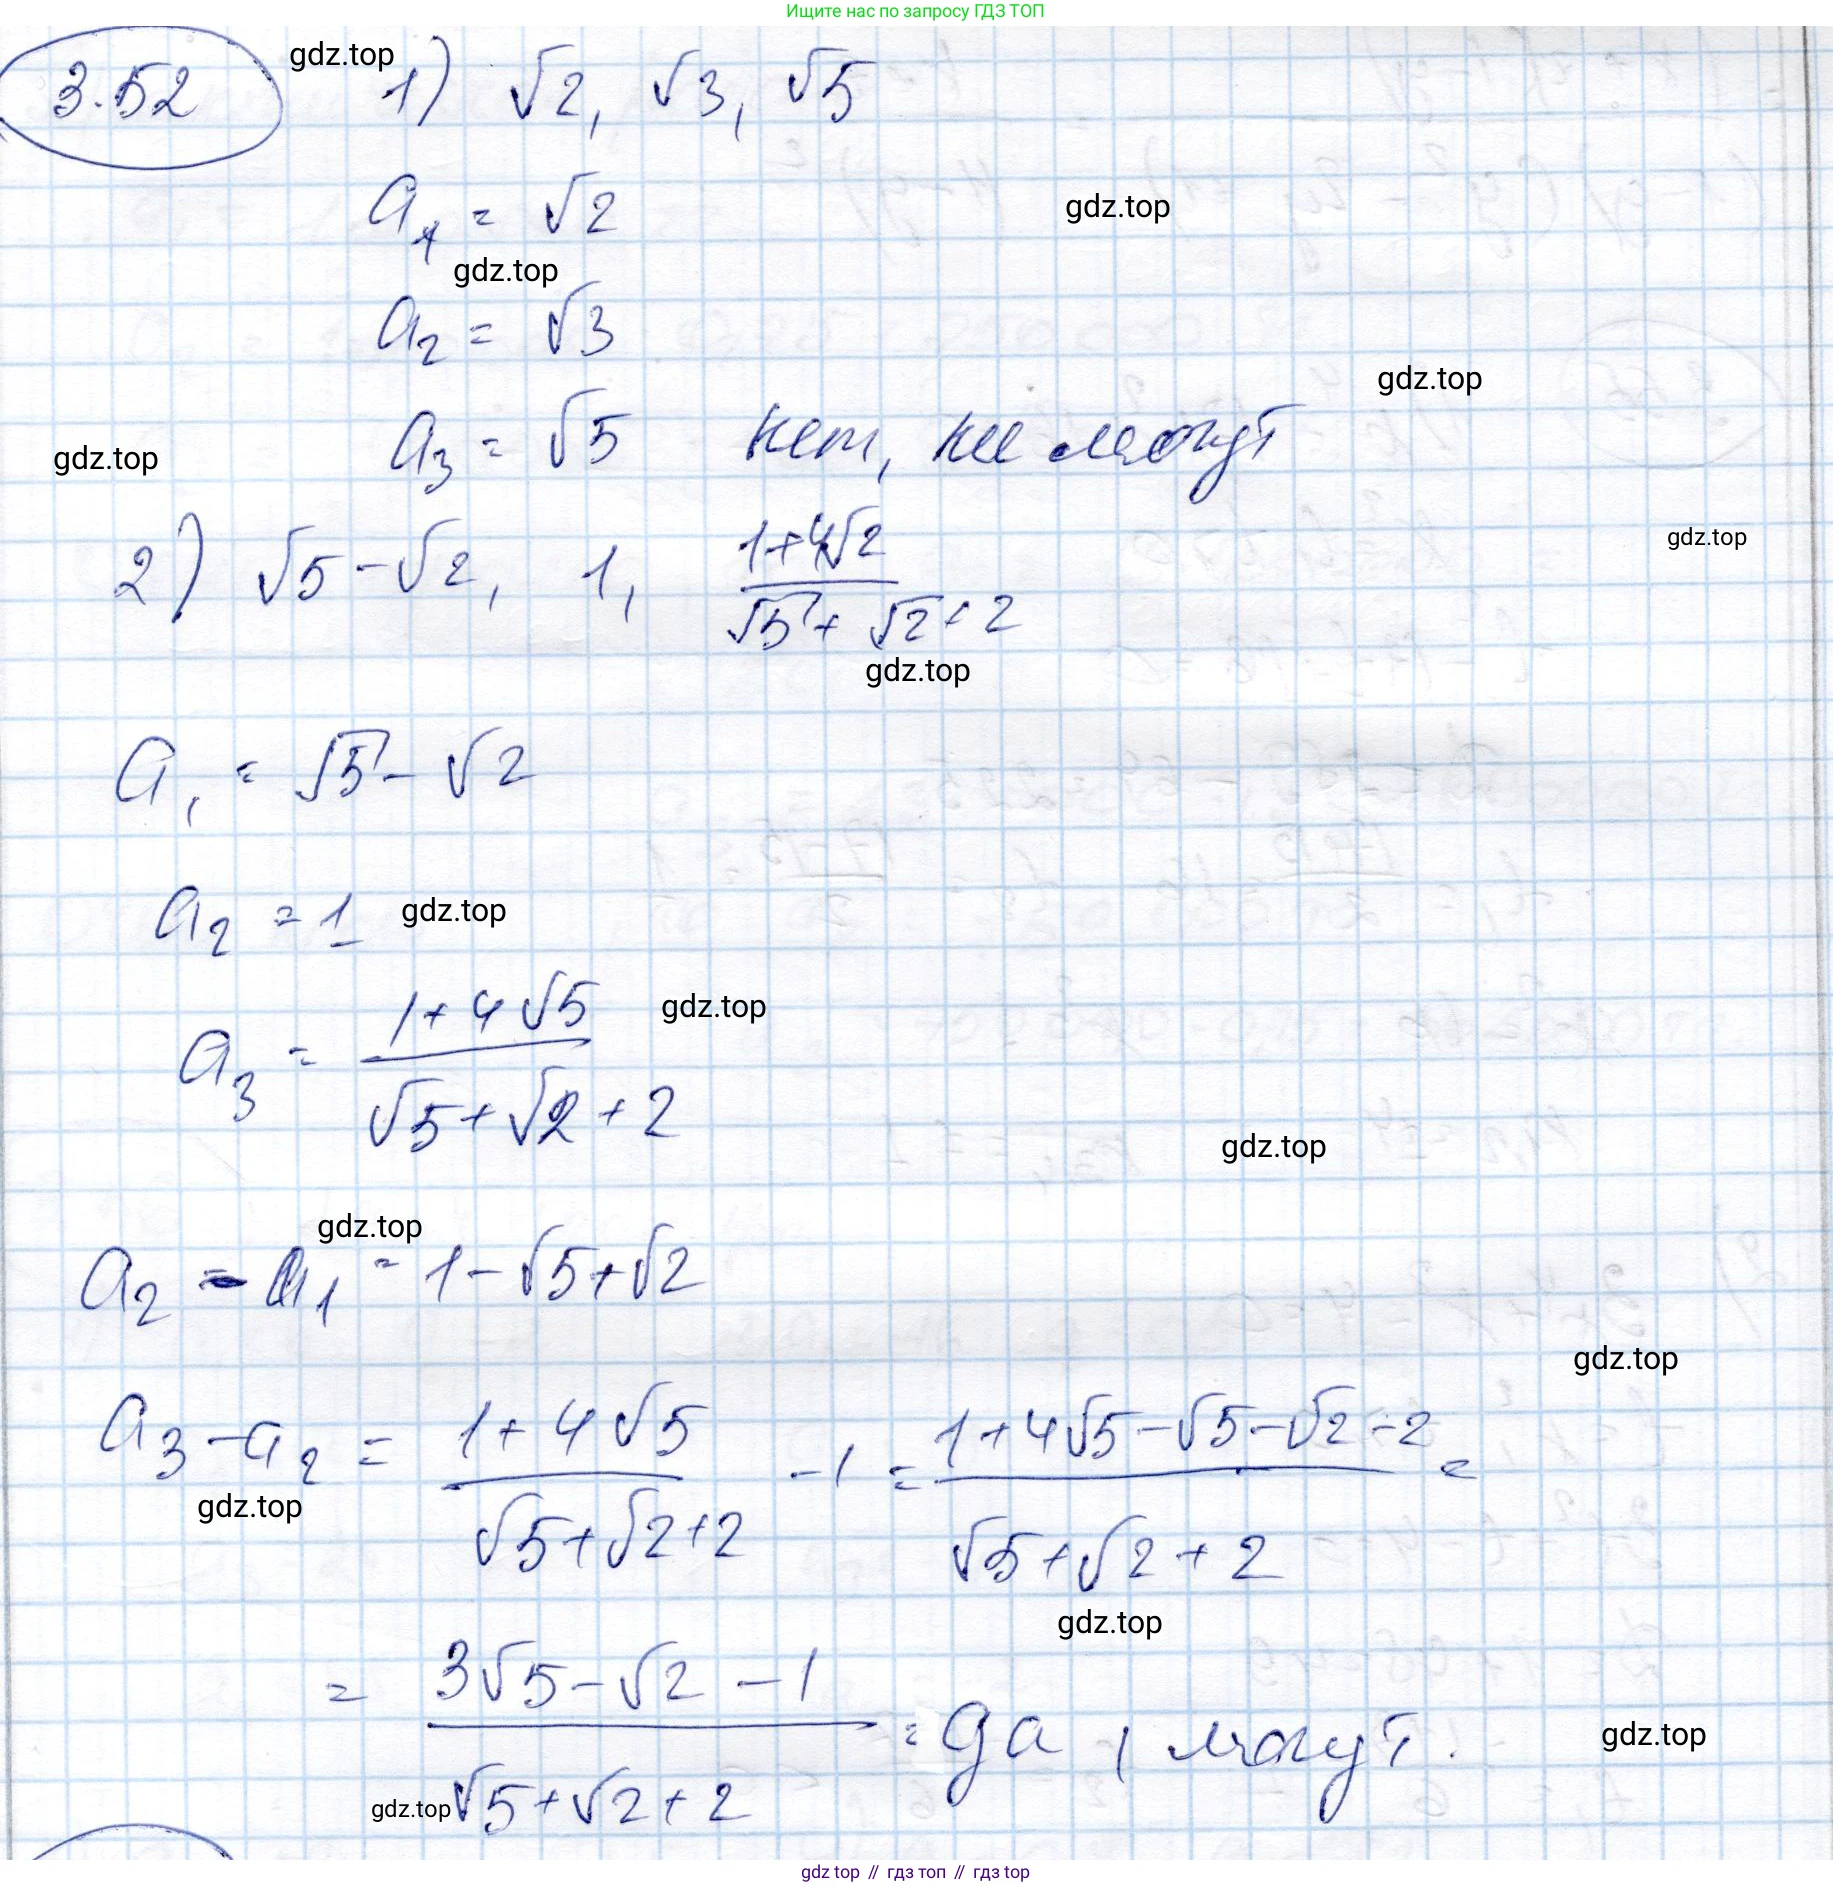 Ищите нас по запросу ГДЗ ТОП
3.52 gdz.top 1) √2, √3, √5
a₁ = √2 gdz.top
gdz.top
a₂ = √3
gdz.top
gdz.top a₃ = √5 нет, не могут
2) √5 - √2, 1, (1+4√2)/(√5+√2+2) gdz.top
gdz.top
a₁ = √5 - √2
a₂ = 1 gdz.top
a₃ = (1+4√5)/(√5+√2+2) gdz.top
gdz.top
gdz.top
a₂ - a₁ = 1-√5+√2
gdz.top
a₃ - a₂ = (1+4√5)/(√5+√2+2) - 1 = (1+4√5-√5-√2-2)/(√5+√2+2) =
gdz.top
gdz.top
= (3√5-√2-1)/(√5+√2+2) = да, могут. gdz.top
gdz.top
gdz top // гдз топ // гдз top